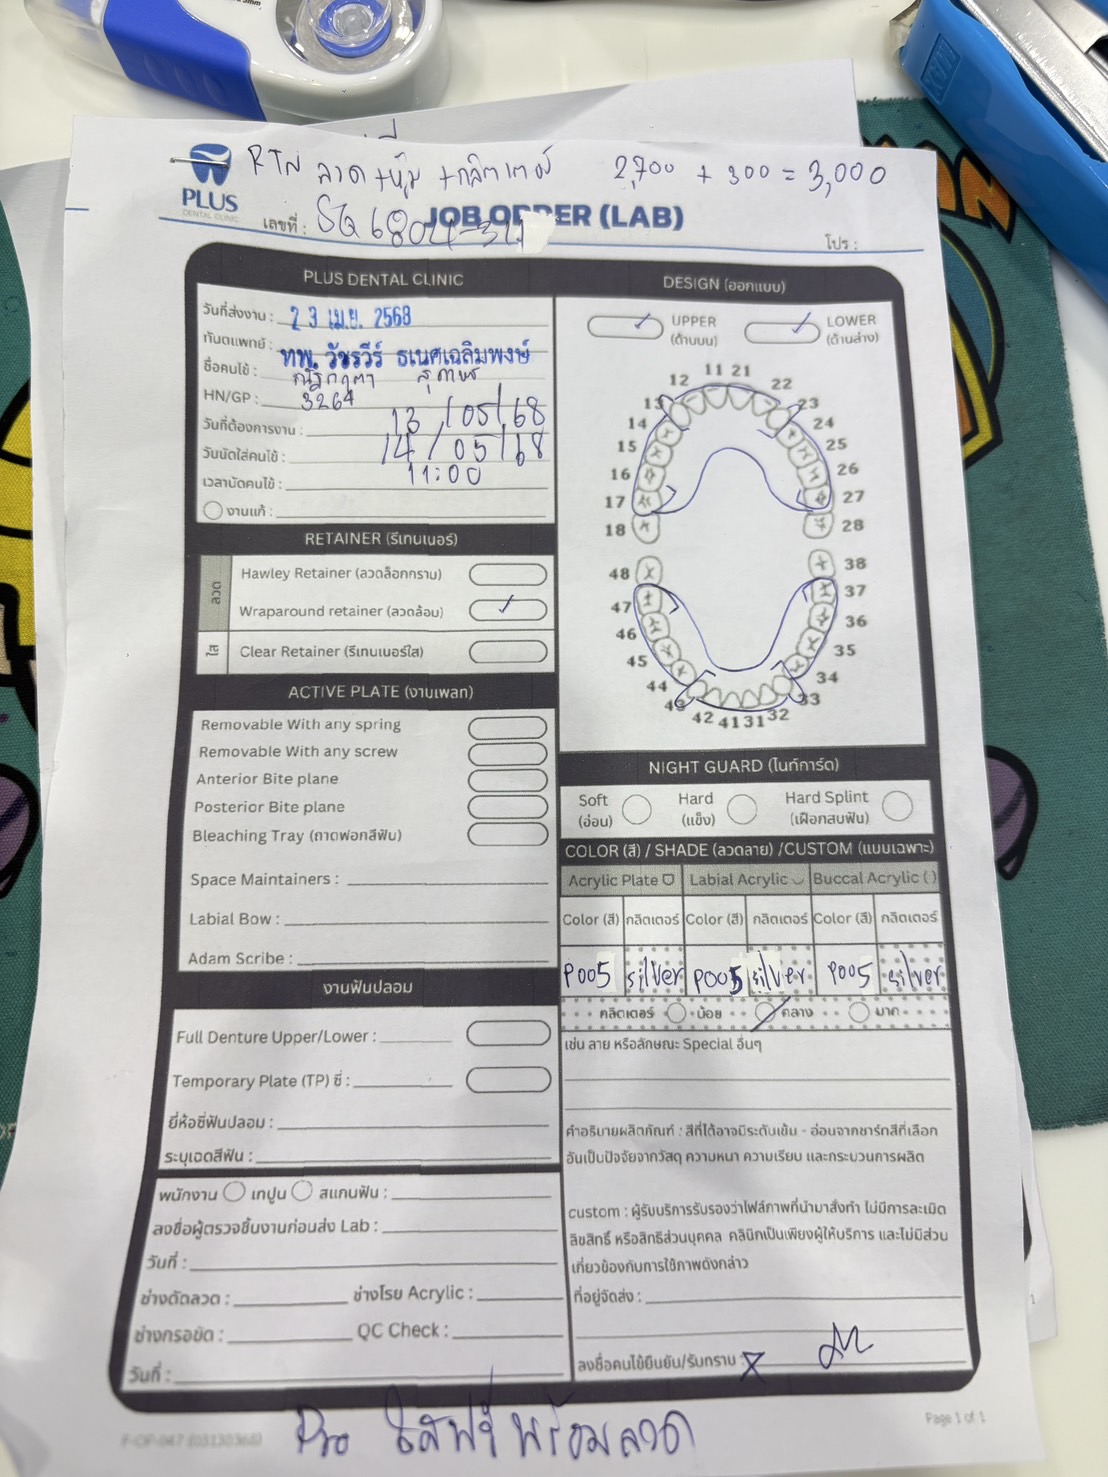 RTN ลวด +หุ้ม +กลิตเตอร์ 2,700 + 300 = 3,000
PLUS
DENTAL CLINIC
JOB ORDER (LAB)
เลขที่ :
โปร :
PLUS DENTAL CLINIC
วันที่ส่งงาน : 23 เม.ย. 2568
ทันตแพทย์ : ทพ. วัชรวีร์ ธเนศเฉลิมพงษ์
ชื่อคนไข้ :
HN/GP : 3264
วันที่ต้องการงาน : 13/05/68
วันนัดใส่คนไข้ : 14/05/68
เวลานัดคนไข้ : 11:00
งานแก้ :
RETAINER (รีเทนเนอร์)
ลวด
Hawley Retainer (ลวดล็อกกราม)
Wraparound retainer (ลวดล้อม)
ใส
Clear Retainer (รีเทนเนอร์ใส)
ACTIVE PLATE (งานเพลท)
Removable With any spring
Removable With any screw
Anterior Bite plane
Posterior Bite plane
Bleaching Tray (ถาดฟอกสีฟัน)
Space Maintainers :
Labial Bow :
Adam Scribe :
งานฟันปลอม
Full Denture Upper/Lower :
Temporary Plate (TP) ซี่ :
ยี่ห้อซี่ฟันปลอม :
ระบุเฉดสีฟัน :
พนักงาน เทปูน สแกนฟัน :
ลงชื่อผู้ตรวจชิ้นงานก่อนส่ง Lab :
วันที่ :
ช่างดัดลวด : ช่างโรย Acrylic :
ช่างกรอขัด : QC Check :
วันที่ :
DESIGN (ออกแบบ)
UPPER (ด้านบน) LOWER (ด้านล่าง)
11 21
12 22
13 23
14 24
15 25
16 26
17 27
18 28
48 38
47 37
46 36
45 35
44 34
43 33
42 41 31 32
NIGHT GUARD (ไนท์การ์ด)
Soft (อ่อน) Hard (แข็ง) Hard Splint (เฝือกสบฟัน)
COLOR (สี) / SHADE (ลวดลาย) /CUSTOM (แบบเฉพาะ)
Acrylic Plate Labial Acrylic Buccal Acrylic ( )
Color (สี) กลิตเตอร์ Color (สี) กลิตเตอร์ Color (สี) กลิตเตอร์
P005 silver P005 silver P005 silver
กลิตเตอร์ น้อย กลาง มาก
เช่น ลาย หรือลักษณะ Special อื่นๆ
คำอธิบายผลิตภัณฑ์ : สีที่ได้อาจมีระดับเข้ม - อ่อนจากชาร์ทสีที่เลือก
อันเป็นปัจจัยจากวัสดุ ความหนา ความเรียบ และกระบวนการผลิต
custom : ผู้รับบริการรับรองว่าไฟล์ภาพที่นำมาสั่งทำ ไม่มีการละเมิด
ลิขสิทธิ์ หรือสิทธิส่วนบุคคล คลินิกเป็นเพียงผู้ให้บริการ และไม่มีส่วน
เกี่ยวข้องกับการใช้ภาพดังกล่าว
ที่อยู่จัดส่ง :
ลงชื่อคนไข้ยืนยัน/รับทราบ : X
Page 1 of 1
Pro ใสฟรี พร้อมลวด